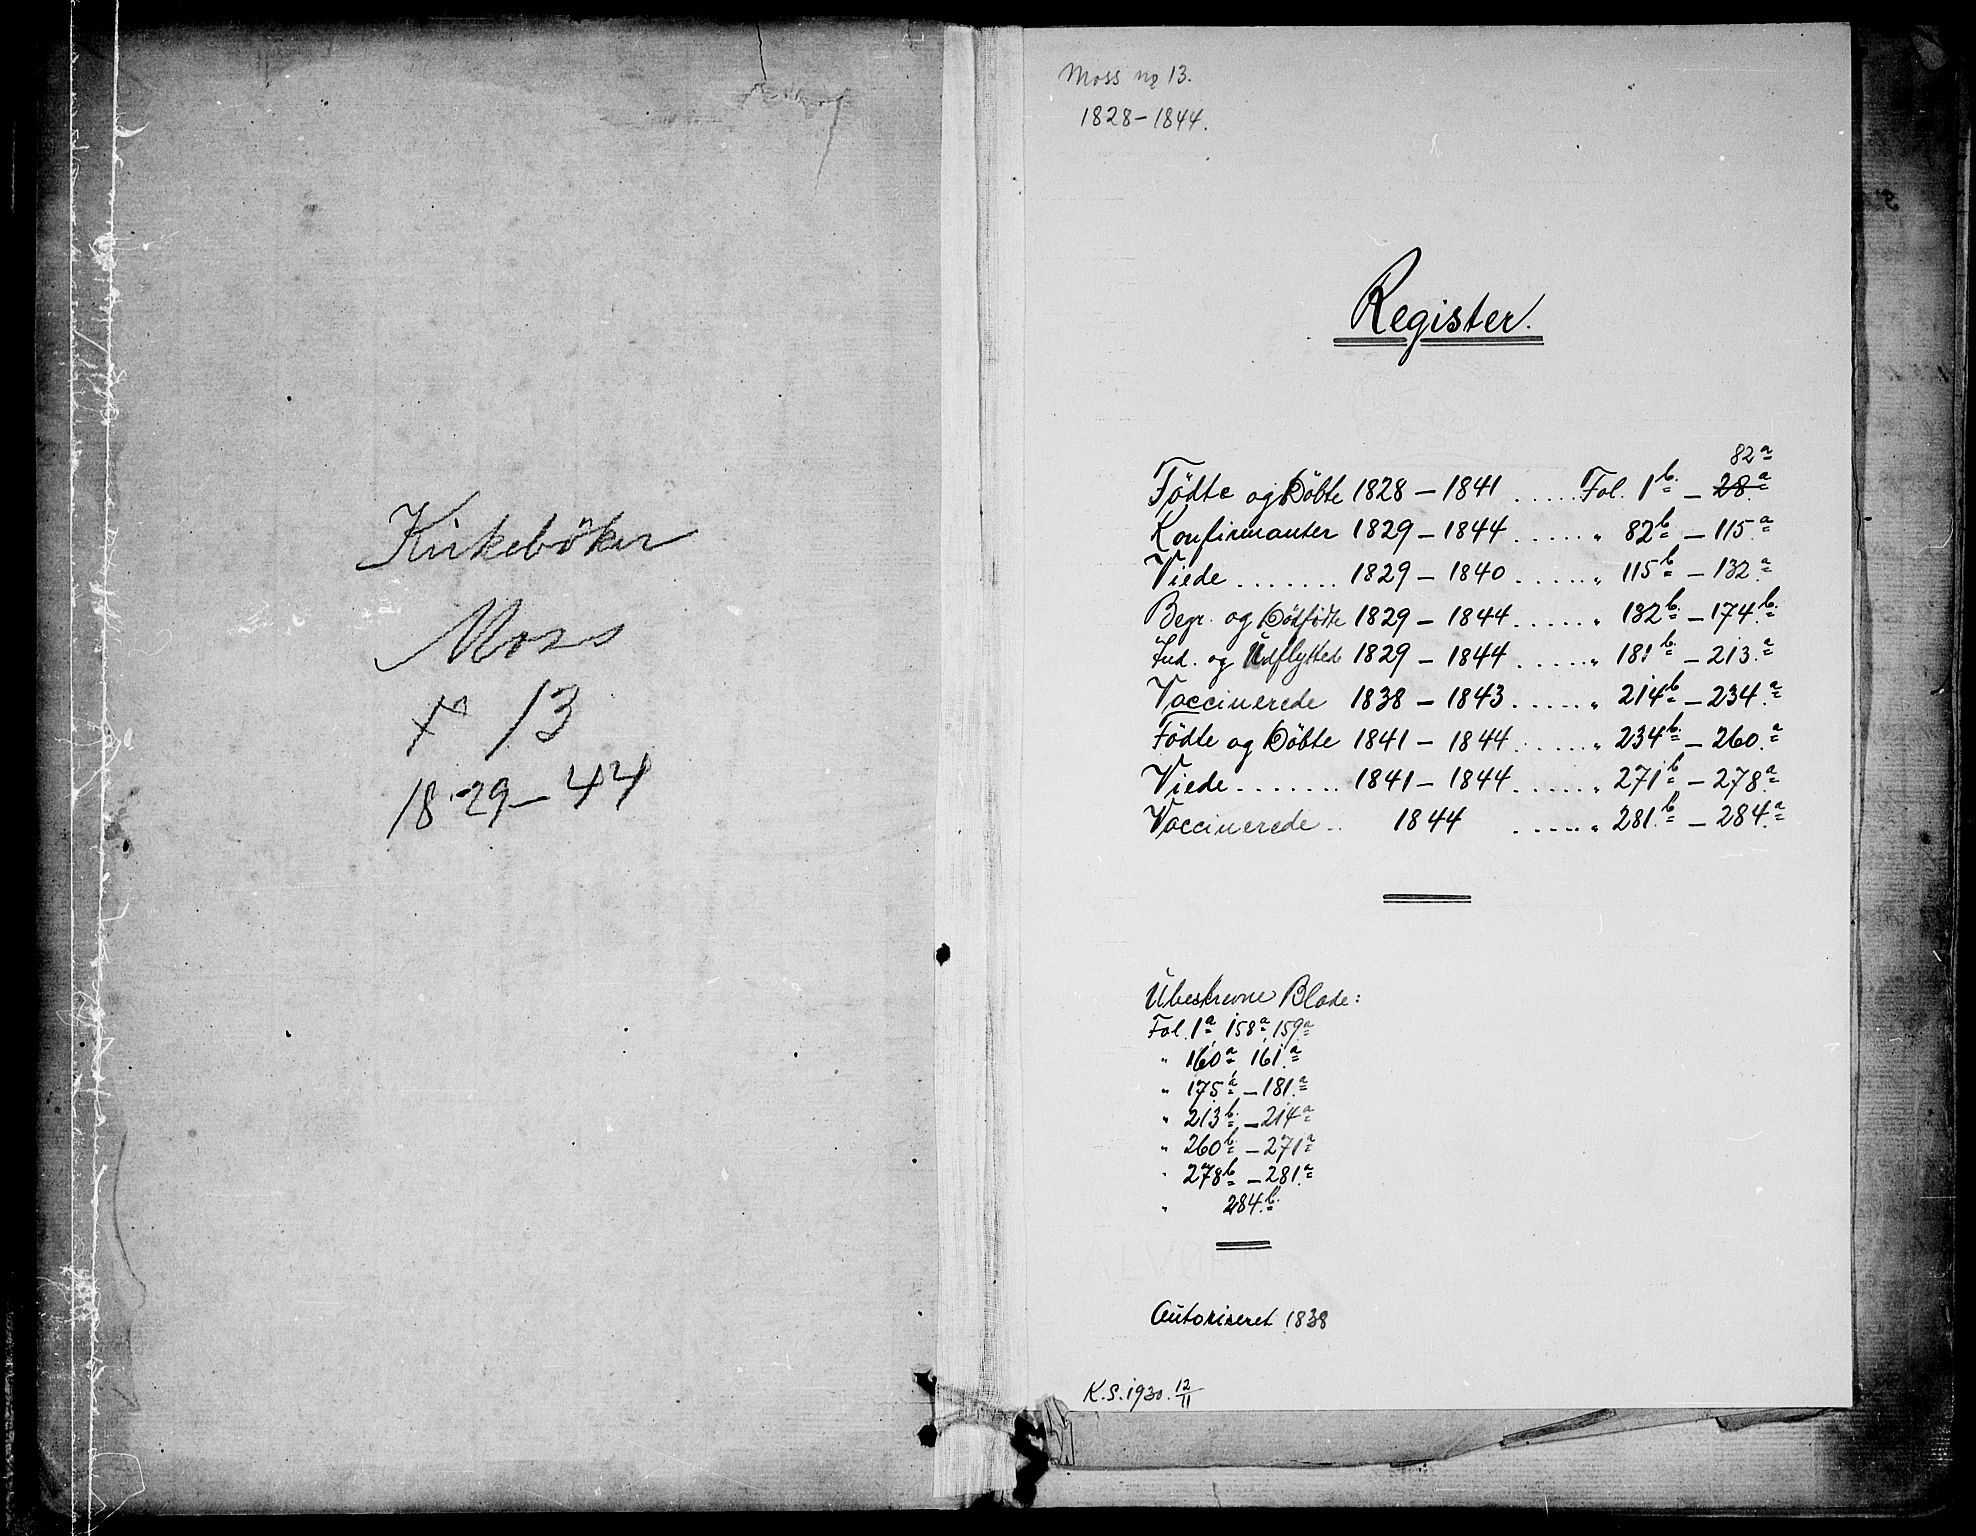 Kirkebøker
Moss
No 13
1829–44
Moss no 13.
1828–1844.
Register.
82a
Födte og Döbte 1828 – 1841 ...... Fol. 1b – 28a
Konfirmanter 1829 – 1844 ...... " 82b – 115a
Viede ....... 1829 – 1840 ...... " 115b – 132a
Begr. og Dödfödte 1829 – 1844 ...... " 132b – 174b
Ind. og Udflyttede 1829 – 1844 ...... " 181b – 213a
Vaccinerede 1838 – 1843 ...... " 214b – 234a
Födte og Döbte 1841 – 1844 ...... " 234b – 260a
Viede ....... 1841 – 1844 ...... " 271b – 278a
Vaccinerede .. 1844 ...... " 281b – 284a
Ubeskrevne Blade:
Fol. 1a, 158a, 159a
" 160a, 161a
" 175a – 181a
" 213b – 214a
" 260b – 271a
" 278b – 281a
" 284b
ALVØEN
Autoriseret 1838
K.S. 1930. 12/11